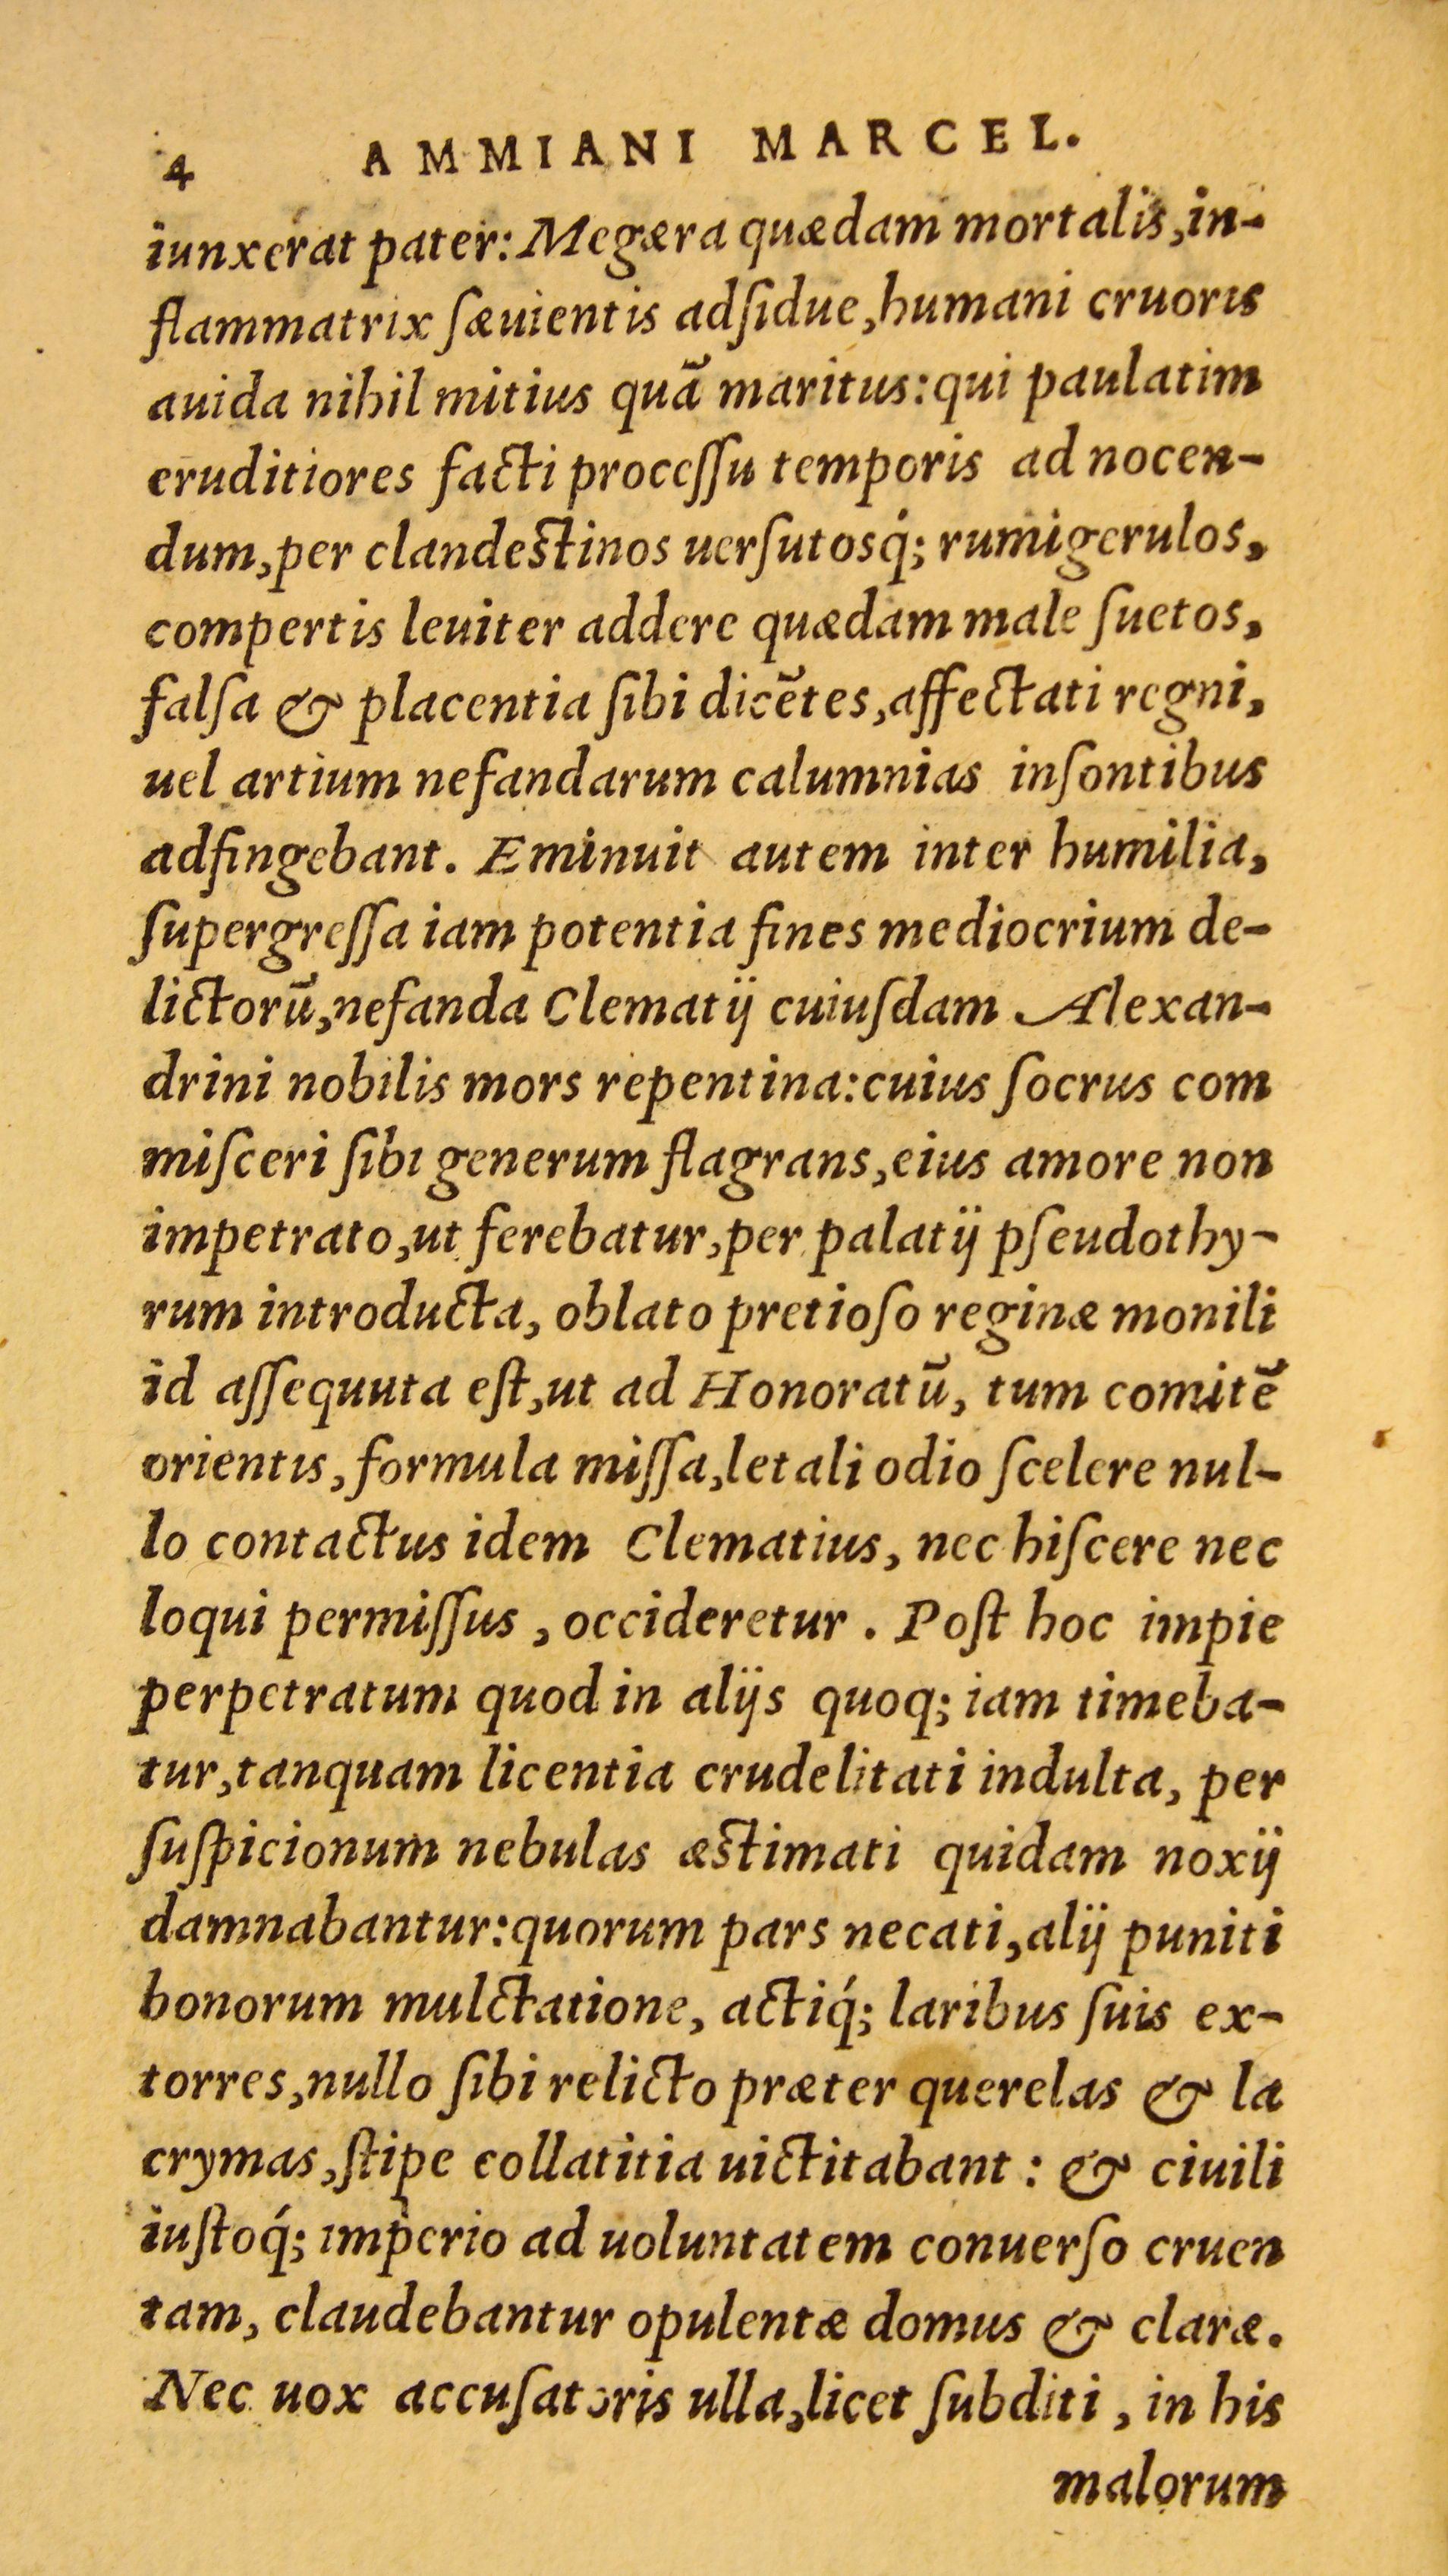 4 AMMIANI MARCEL.
iunxerat pater: Megæra quædam mortalis, in-
flammatrix ſæuientis adſidue, humani cruoris
auida nihil mitius quã maritus: qui paulatim
eruditiores facti proceſſu temporis ad nocen-
dum, per clandestinos uerſutosq́; rumigerulos,
compertis leuiter addere quædam male ſuetos,
falſa & placentia ſibi dicẽtes, affectati regni,
uel artium nefandarum calumnias inſontibus
adfingebant. Eminuit autem inter humilia,
ſupergreſſa iam potentia fines mediocrium de-
lictorũ, nefanda Clematij cuiuſdam Alexan-
drini nobilis mors repentina: cuius ſocrus com
miſceri ſibi generum flagrans, eius amore non
impetrato, ut ferebatur, per palatij pſeudothy-
rum introducta, oblato pretioſo reginæ monili
id aſſequuta eſt, ut ad Honoratũ, tum comitẽ
orientis, formula miſſa, letali odio ſcelere nul-
lo contactus idem Clematius, nec hiſcere nec
loqui permiſſus, occideretur. Poſt hoc impie
perpetratum quod in alijs quoq; iam timeba-
tur, tanquam licentia crudelitati indulta, per
ſuſpicionum nebulas æstimati quidam noxij
damnabantur: quorum pars necati, alij puniti
bonorum mulctatione, actiq́; laribus ſuis ex-
torres, nullo ſibi relicto præter querelas & la
crymas, ſtipe collatitia uictitabant: & ciuili
iuſtoq́; imperio ad uoluntatem conuerſo cruen
tam, claudebantur opulentæ domus & claræ.
Nec uox accuſatoris ulla, licet ſubditi, in his
malorum